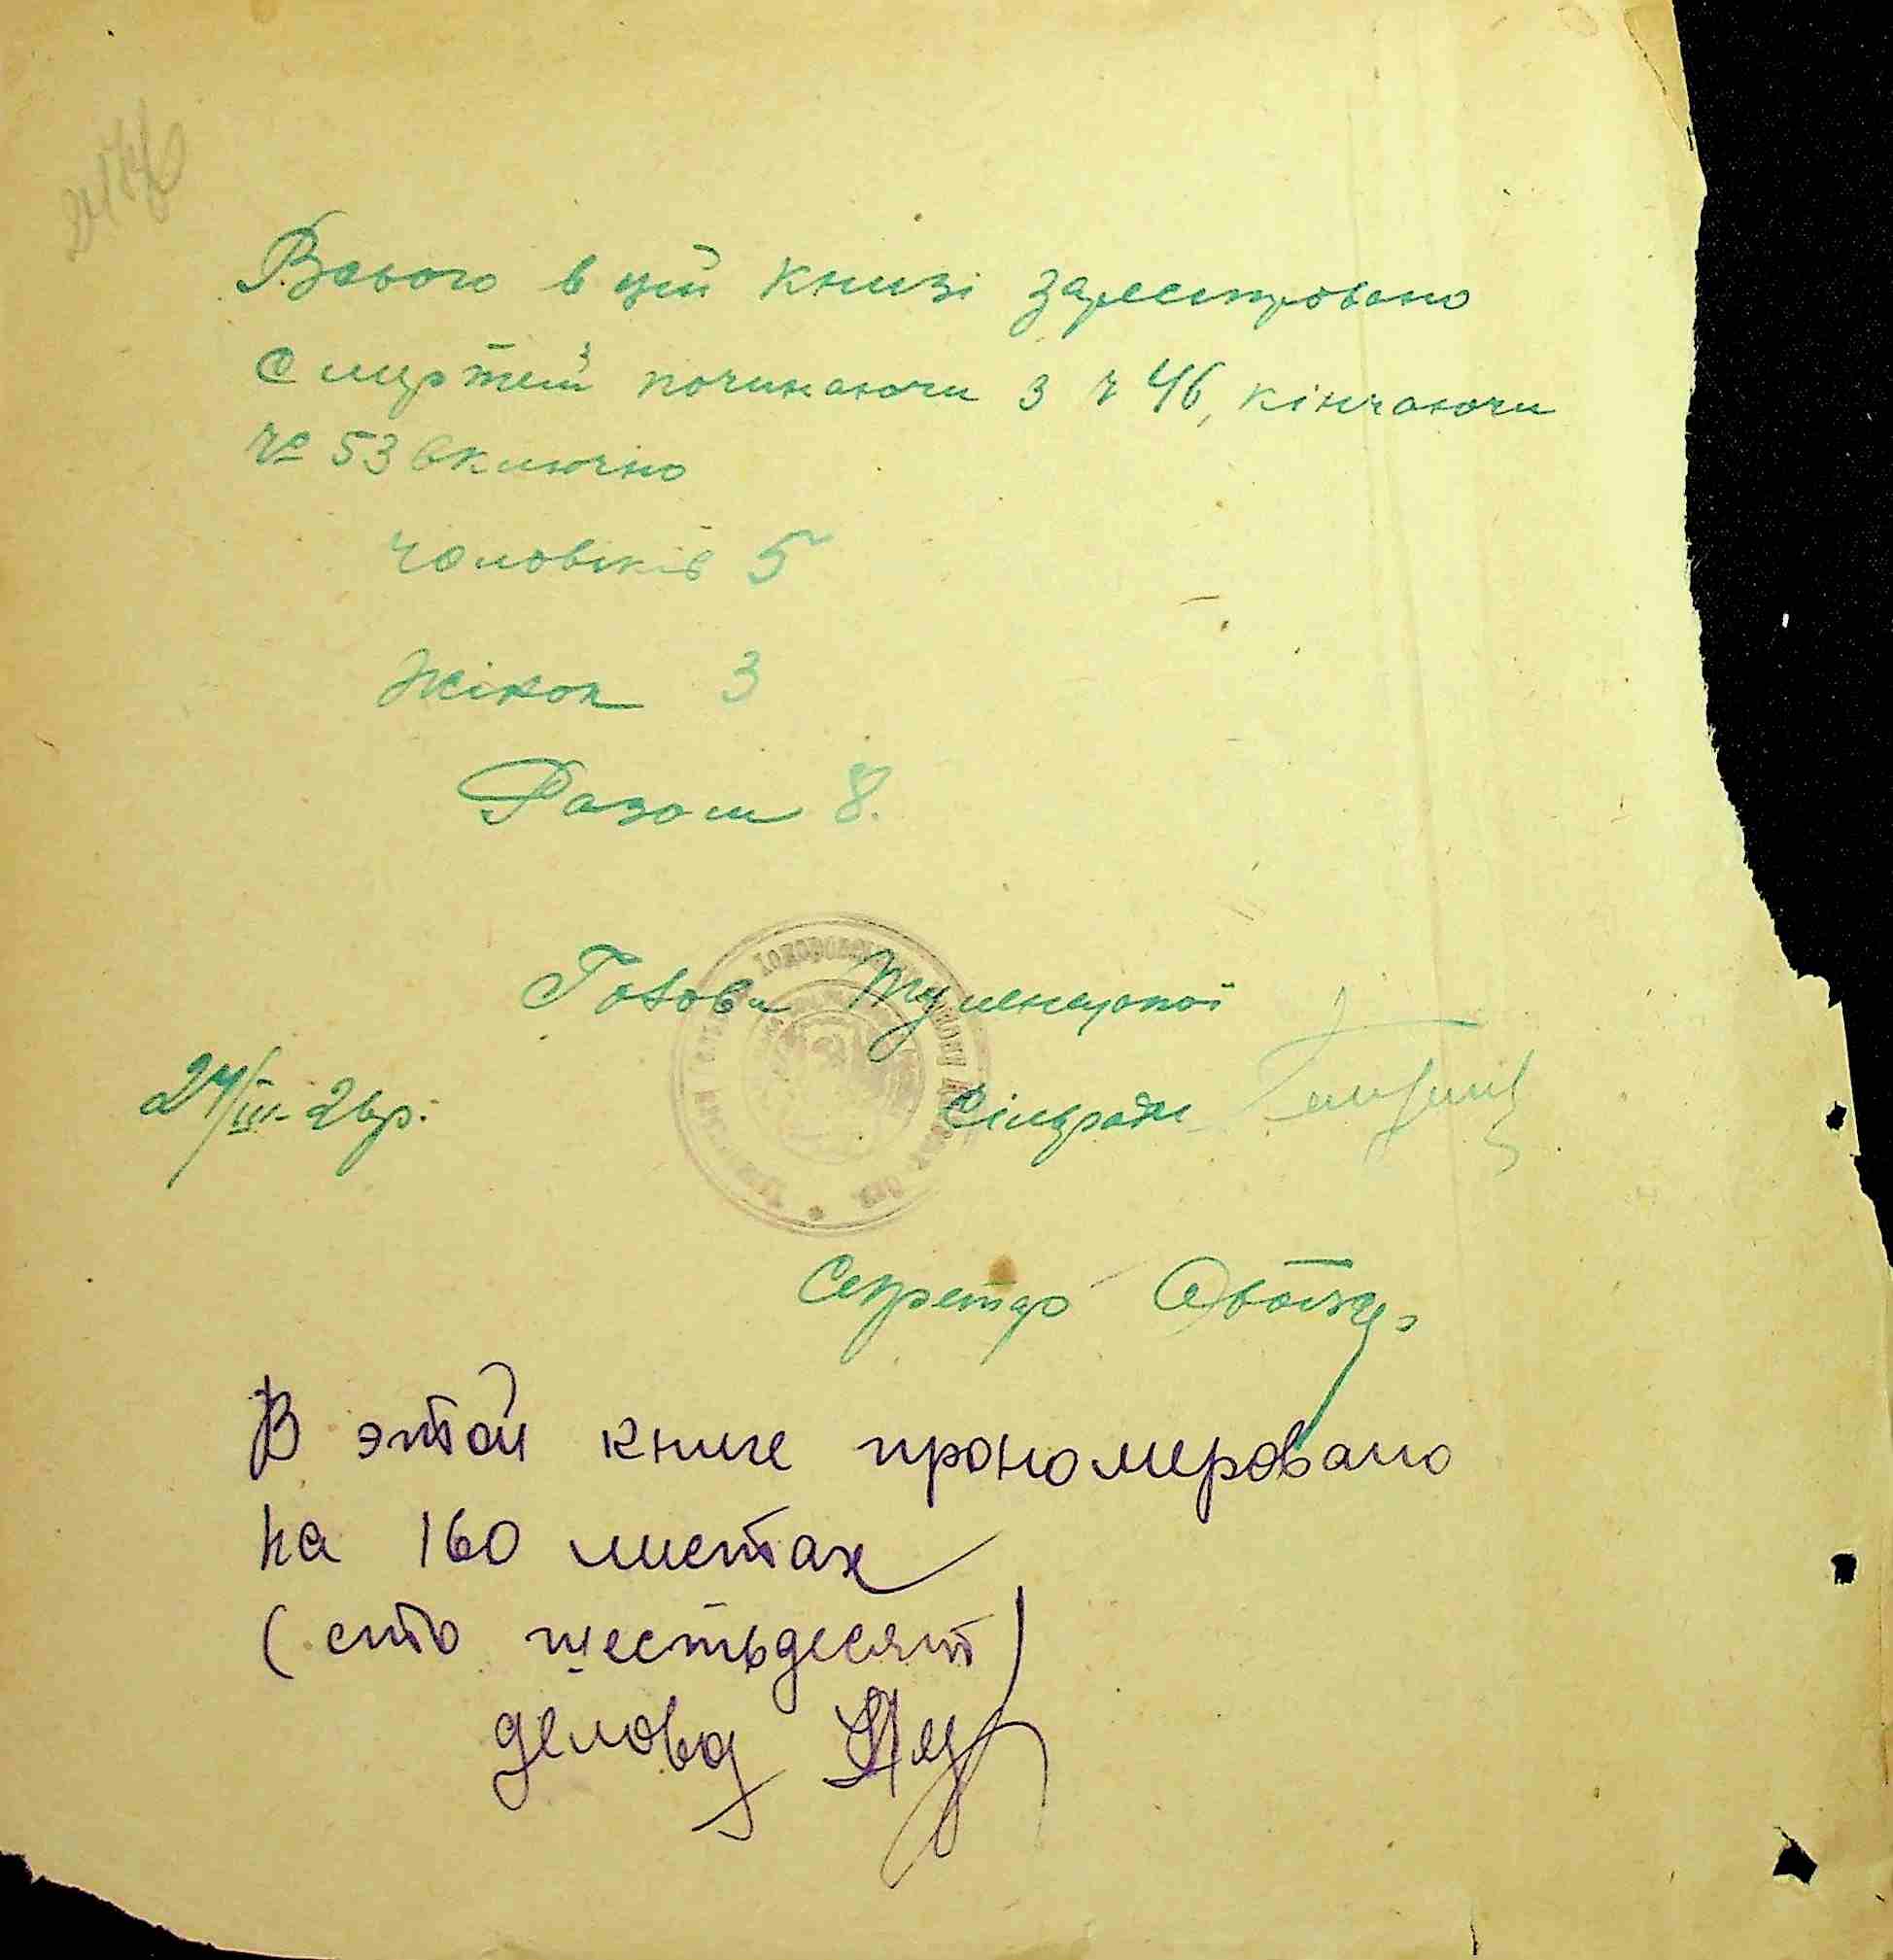 Всього в цій книзі зареєстровано
смертей починаючи з ч 46, кінчаючи
№ 53 включно
чоловіків 5
Жінок 3
Разом 8.
Голова
24/III-26р.
Сільради
Секретар
В этой книге прономеровано
на 160 листах
(сто шестьдесят)
деловод